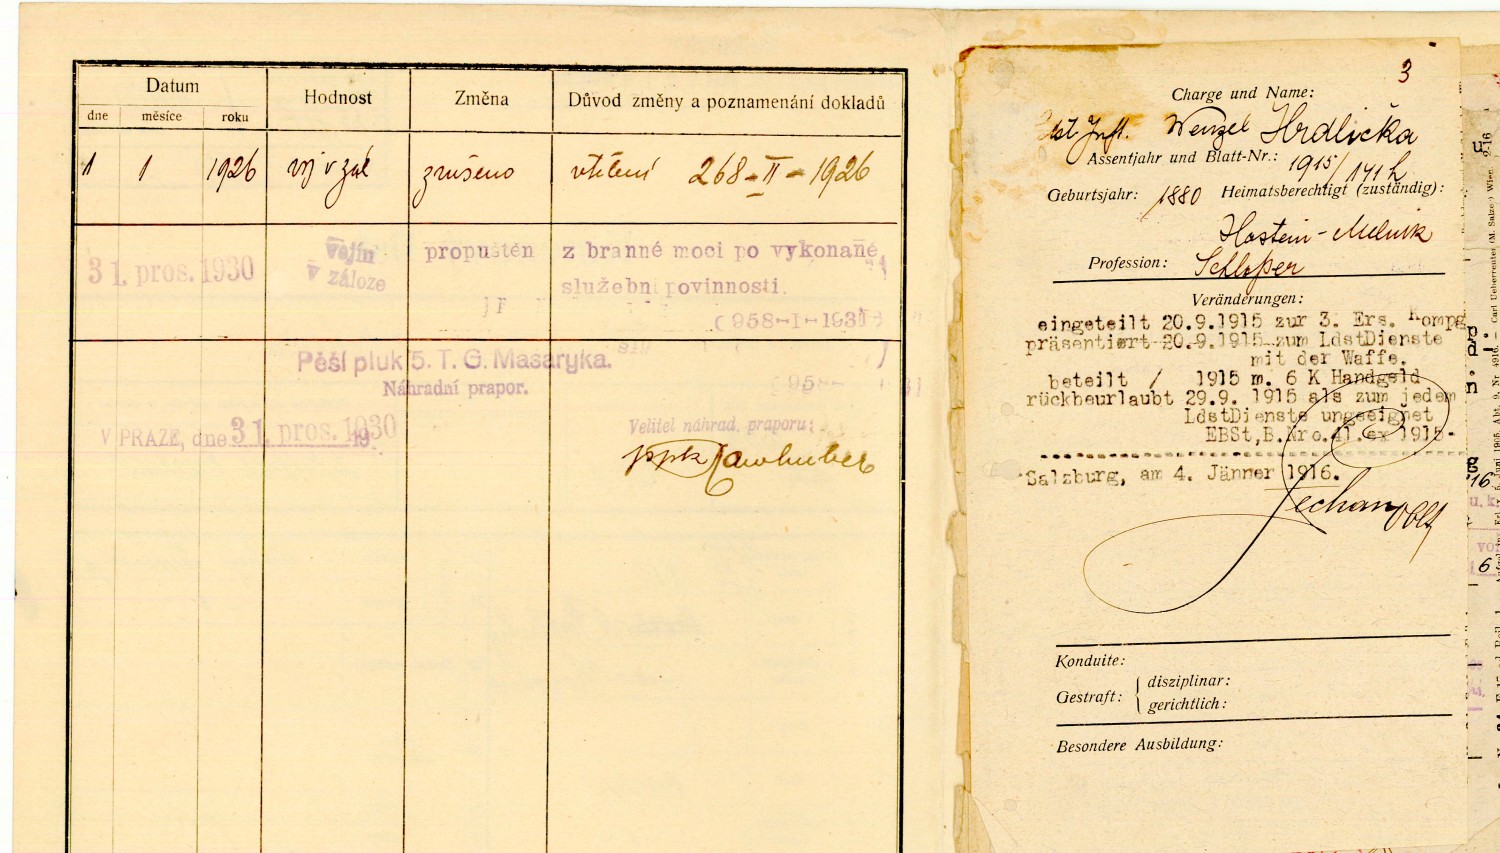 Datum
Hodnost
Změna
Důvod změny a poznamenání dokladů
dne
měsíce
roku
1 1 1926 voj v zál zrušeno vtělení 268-II-1926
31. pros. 1930
vojín
v záloze
propuštěn
z branné moci po vykonané
služební povinnosti.
(958-I-1931
Pěší pluk 5. T. G. Masaryka.
Náhradní prapor.
V PRAZE, dne 31. pros. 1930
19
Velitel náhrad. praporu:
ppk
3
Charge und Name:
Ldst. Inft. Wenzel Hrdlička
Assentjahr und Blatt-Nr.: 1915/141 h
Geburtsjahr: 1880 Heimatsberechtigt (zuständig):
Hostein-Melnik
Profession: Schloßer
Veränderungen:
eingeteilt 20.9.1915 zur 3. Ers. Kompg
präsentiert 20.9.1915 zum LdstDienste
mit der Waffe.
beteilt / 1915 m. 6 K Handgeld
rückbeurlaubt 29.9. 1915 als zum jedem
LdstDienste ungeeignet
EBSt,B.Nro.41.ex 1915-
Salzburg, am 4. Jänner 1916.
Oblt
Konduite:
Gestraft: { disziplinar:
gerichtlich:
Besondere Ausbildung: